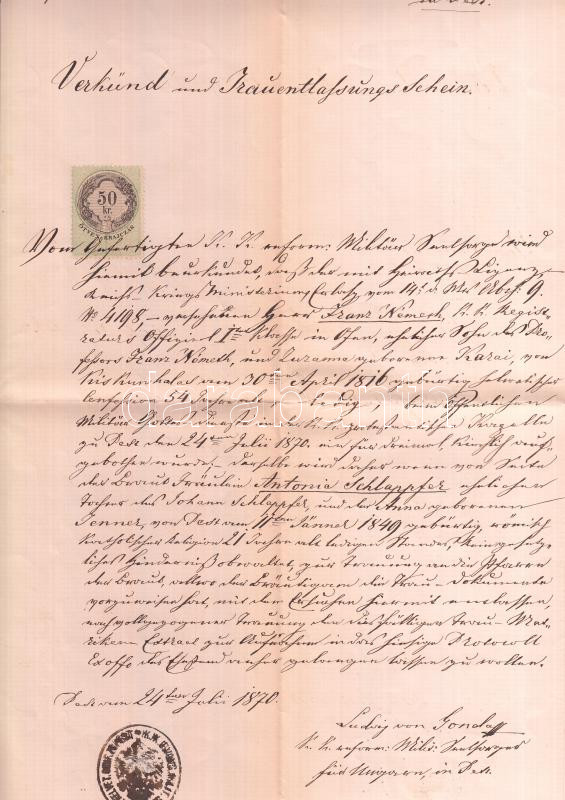 in Pest.
Verkünd und Trauentlassungs Schein.
50
kr.
ÖTVEN KRAJCZÁR
Vom Gefertigten K. K. reform: Militär Seelsorge wird
hiemit beurkundet, daß der mit Heiraths
Reichs-Kriegs Ministeriums Erlaß vom 14. 9
No 4198 – versehenen Herr Franz Nemeth, K. K. Regist-
raturs Official Iter Klasse in Ofen, ehelicher Sohn des Pro-
fessors Franz Németh, und Susanna geborene Karai, von
Kis Kun halas am 30ten April 1816 gebürtig helvetischer
Confession 54 Jahre alt ledig, beim öffentlichen
Militär Gottesdienste in der Kapelle
zu Pest den 24ten Julii 1870. ein für dreimal, kirchlich auf-
gebothen wurde. Derselbe wird daher wenn von Seite
der Braut Fräulein Antonia Schlappfer ehelichen
Tochter des Johann Schlappfer, und der Anna geborenen
Jenner, von Pest am 11ten Jänner 1849 gebürtig, römisch
Katholischer Religion 21 Jahre alt ledigen Standes, kein gesetz-
liches Hinderniß obwaltet, zur Trauung an die Pfarre
der Braut, allwo der Bräutigam die Trau-Dokumente
vorzuweisen hat, mit dem Ersuchen hiermit entlassen,
nach vollzogener Trauung den diesfälligen Trau-Mat-
rikeln Extract zur Aufnahme in das hiesige Protocoll
Ex offo anher gelangen lassen zu wollen.
Pest am 24ten Julii 1870.
Ludwig von
K. K. reform: Milit: Seelsorger
für Ungarn, in Pest.
darabanth